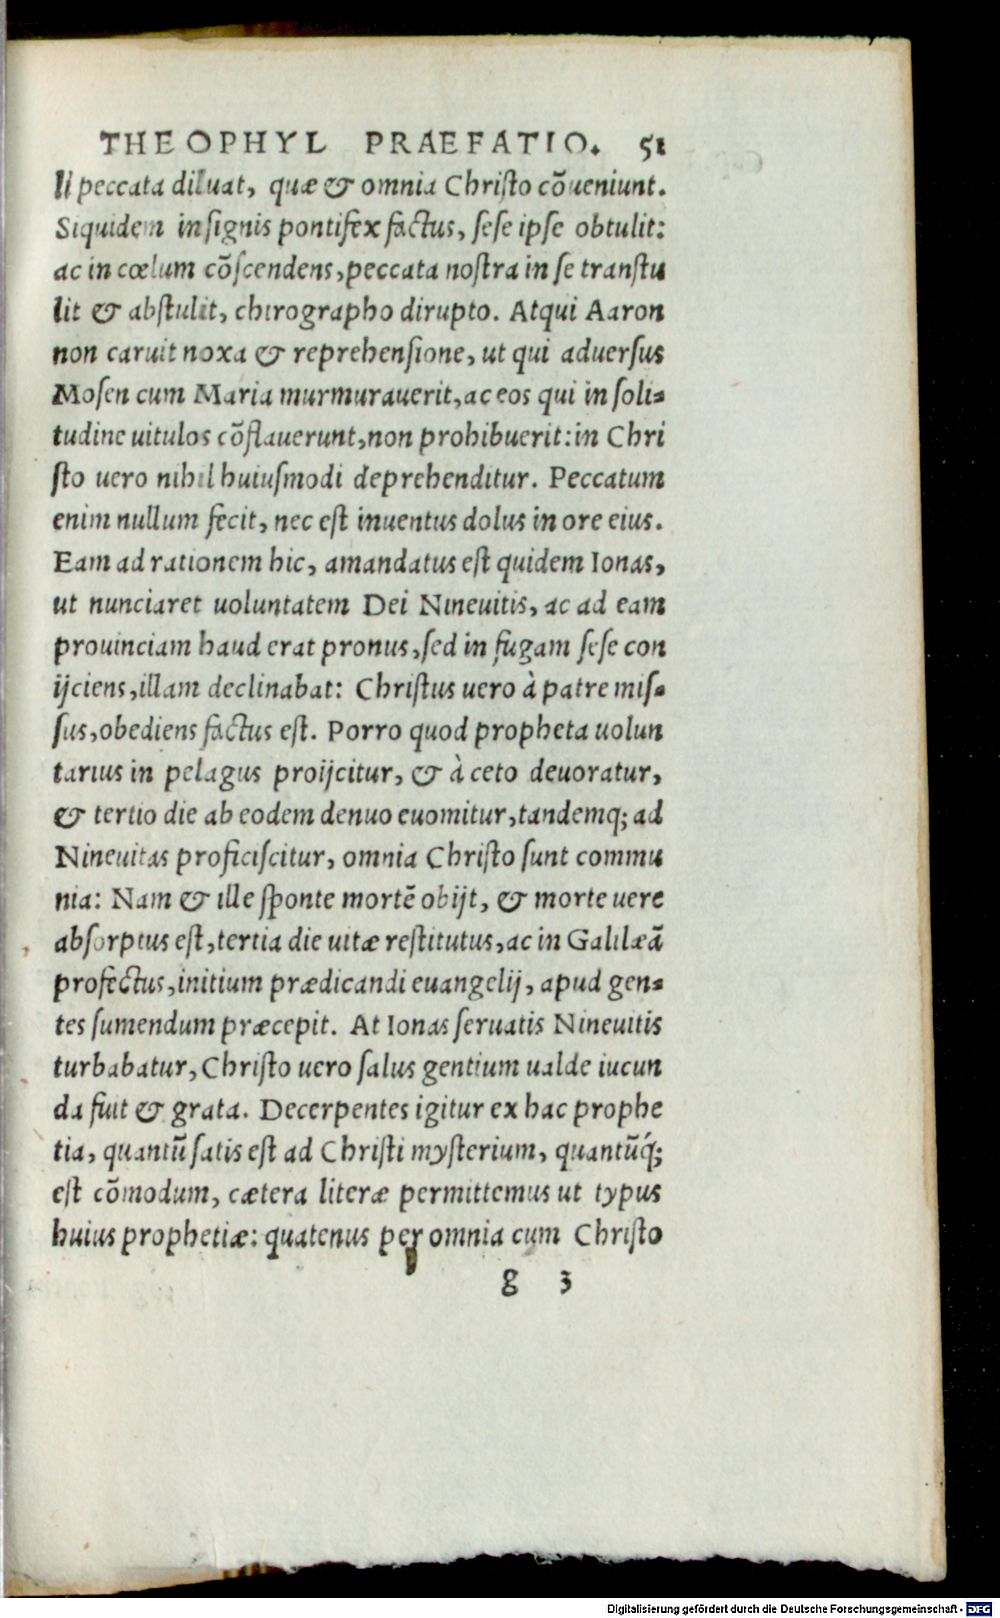 THEOPHYL PRAEFATIO. 51
li peccata diluat, quæ & omnia Christo cõueniunt.
Siquidem insignis pontifex factus, sese ipse obtulit:
ac in cœlum cõscendens, peccata nostra in se transtu
lit & abstulit, chirographo dirupto. Atqui Aaron
non caruit noxa & reprehensione, ut qui aduersus
Mosen cum Maria murmurauerit, ac eos qui in soli-
tudine uitulos cõflauerunt, non prohibuerit: in Chri
sto uero nihil huiusmodi deprehenditur. Peccatum
enim nullum fecit, nec est inuentus dolus in ore eius.
Eam ad rationem hic, amandatus est quidem Ionas,
ut nunciaret uoluntatem Dei Nineuitis, ac ad eam
prouinciam haud erat pronus, sed in fugam sese con
ijciens, illam declinabat: Christus uero à patre mis-
sus, obediens factus est. Porro quod propheta uolun
tarius in pelagus proijcitur, & à ceto deuoratur,
& tertio die ab eodem denuo euomitur, tandemq; ad
Nineuitas proficiscitur, omnia Christo sunt commu
nia: Nam & ille sponte mortẽ obijt, & morte uere
absorptus est, tertia die uitæ restitutus, ac in Galilæã
profectus, initium prædicandi euangelij, apud gen-
tes sumendum præcepit. At Ionas seruatis Nineuitis
turbabatur, Christo uero salus gentium ualde iucun
da fuit & grata. Decerpentes igitur ex hac prophe
tia, quantũ satis est ad Christi mysterium, quantũq́;
est cõmodum, cætera literæ permittemus ut typus
huius prophetiæ: quatenus per omnia cum Christo
g 3
Digitalisierung gefördert durch die Deutsche Forschungsgemeinschaft - DFG